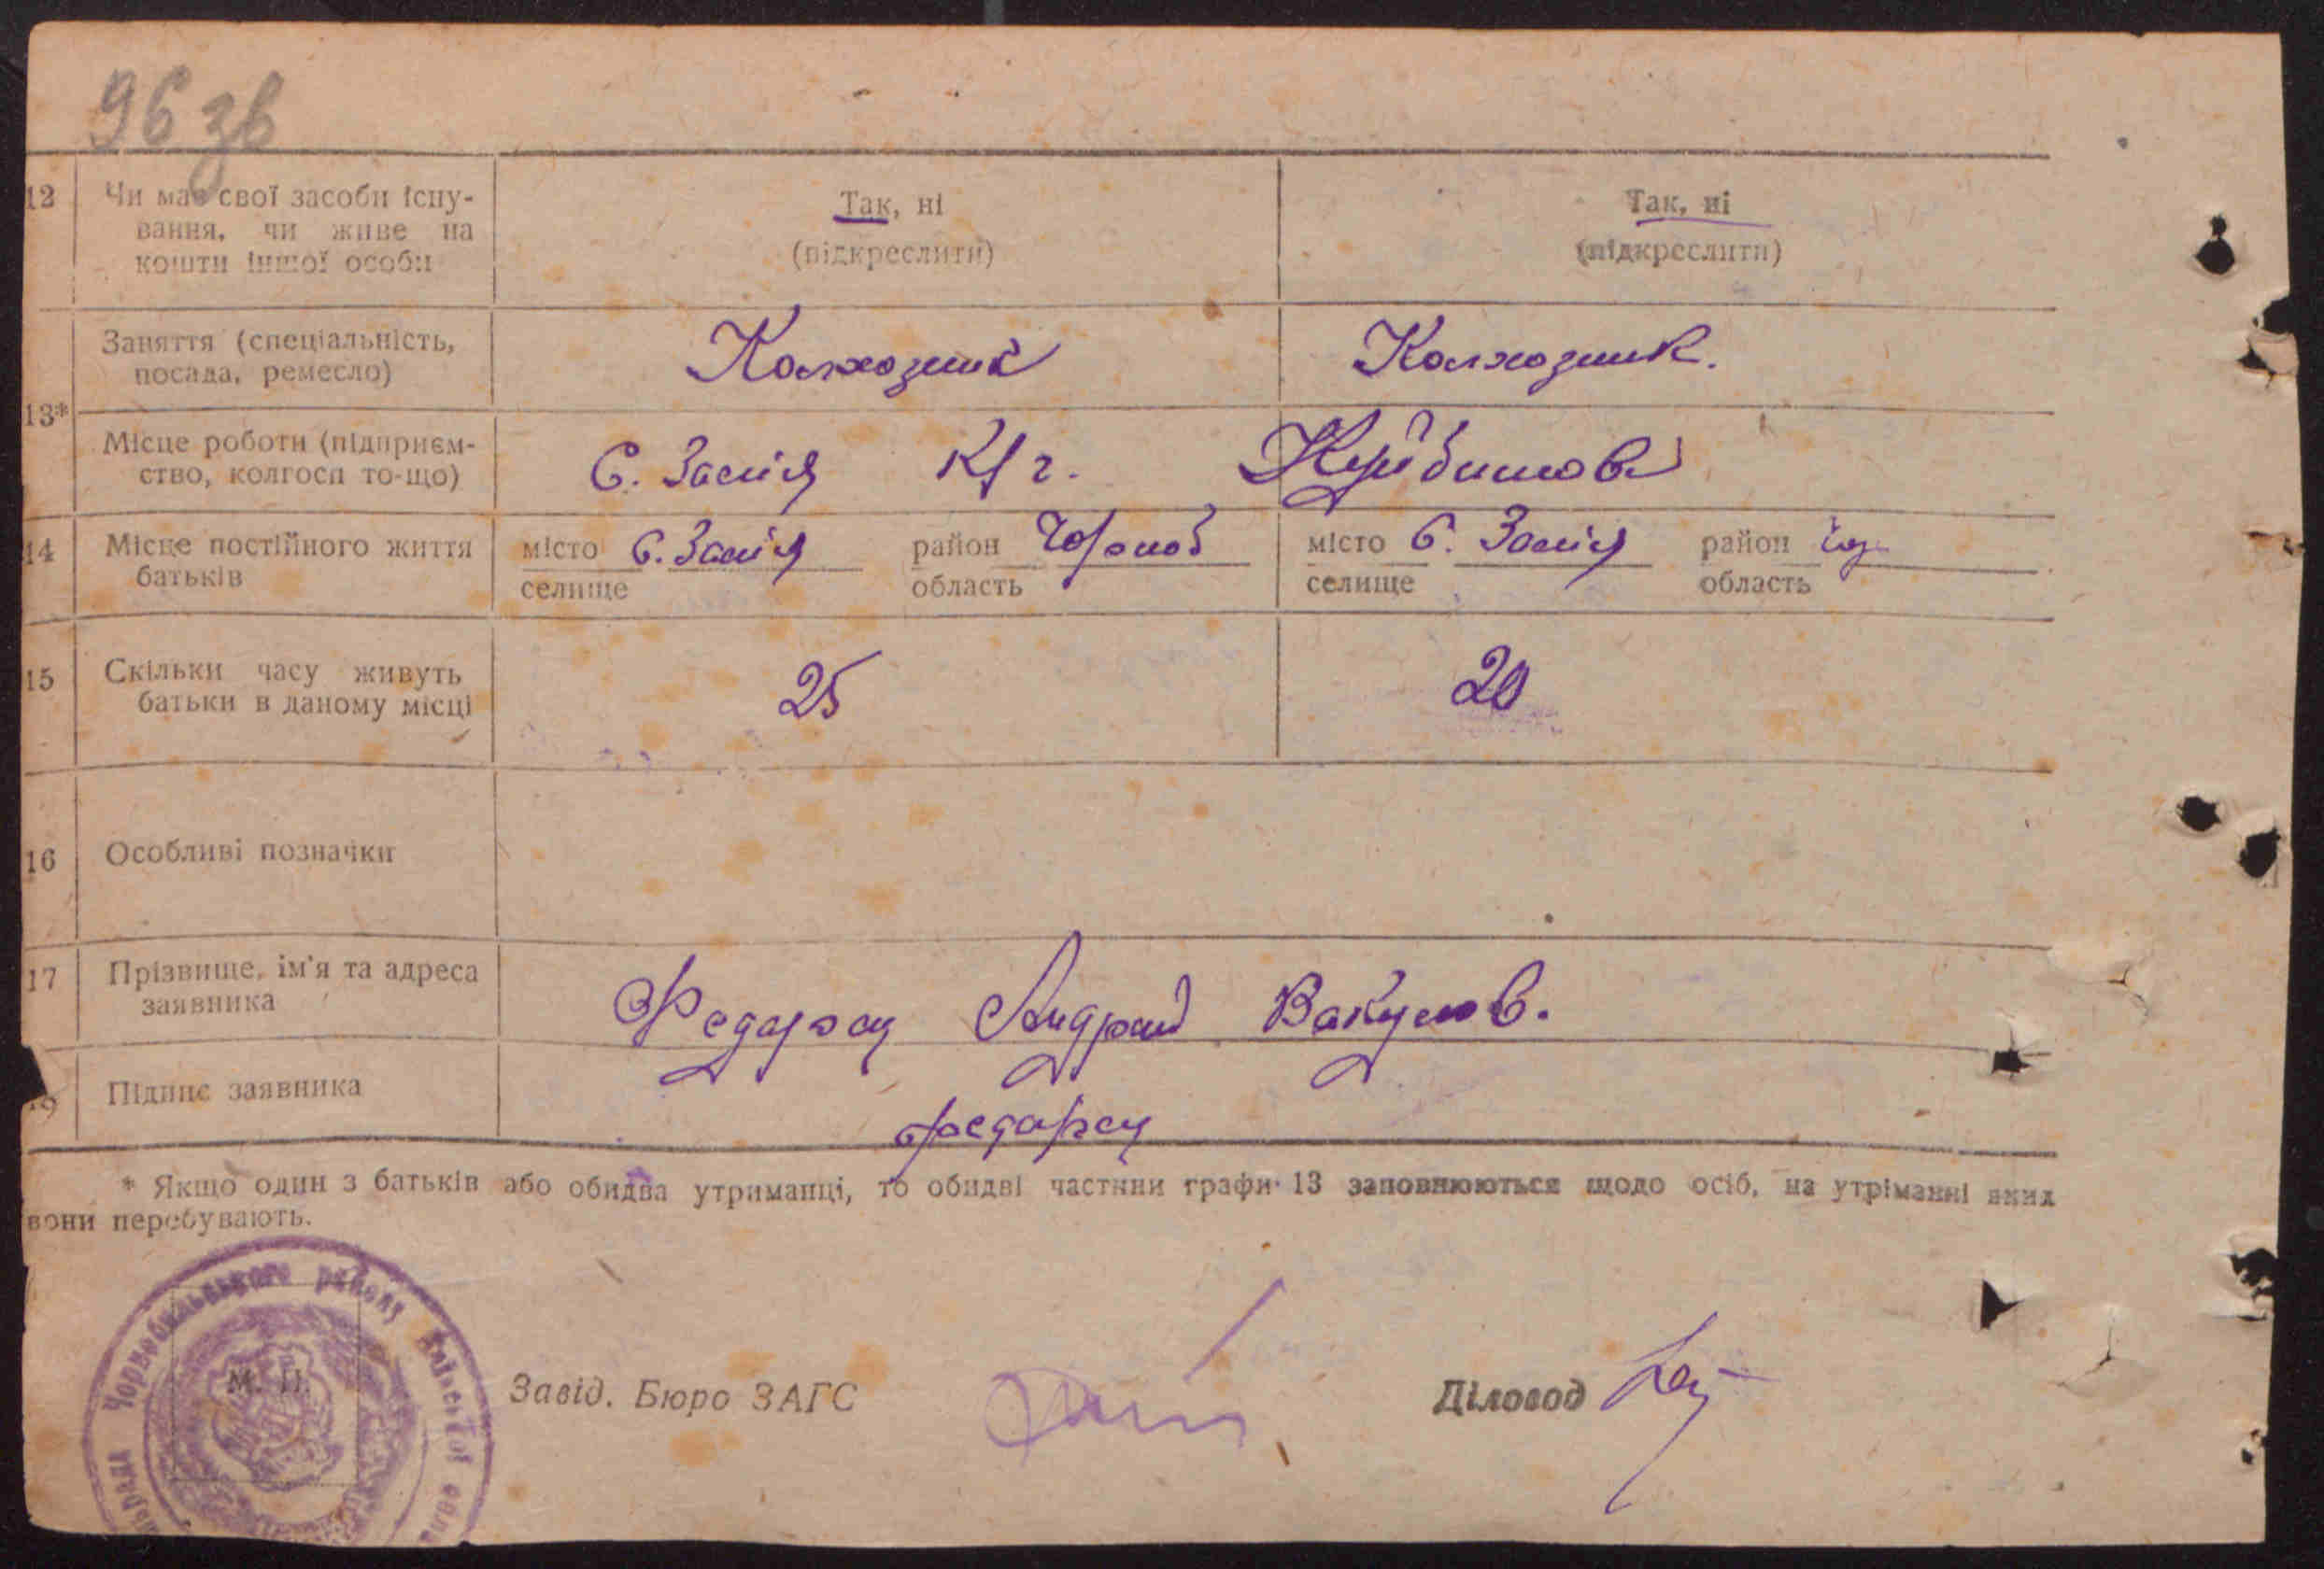 96 зв
12 Чи має свої засоби існу-
вання, чи живе на
кошти іншої особи
Так, ні
(підкреслити)
Так, ні
(підкреслити)
13*
Заняття (спеціальність,
посада, ремесло)
Колхозник
Колхозник.
Місце роботи (підприєм-
ство, колгосп то-що)
С. Залісся К/г. Куйбишова
14 Місце постійного життя
батьків
місто С. Залісся район Чорноб
селище область
місто С. Залісся район Чор
селище область
15 Скільки часу живуть
батьки в даному місці
25
20
16 Особливі позначки
17 Прізвище, ім'я та адреса
заявника
Андрей Вакулов.
Підпис заявника
* Якщо один з батьків або обидва утриманці, то обидві частини графи 13 заповнюються щодо осіб, на утріманні яких
вони перебувають.
Чорнобильського району Київської
М. П.
Завід. Бюро ЗАГС
Діловод